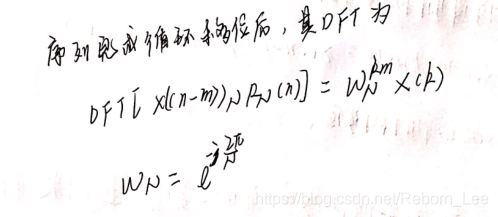 序列形成循环移位后，其DFT为
DFT[x((n-m))_N R_N(n)] = W_N^{km} X(k)
W_N = e^{-j\frac{2π}{N}}
https://blog.csdn.net/Reborn_Lee